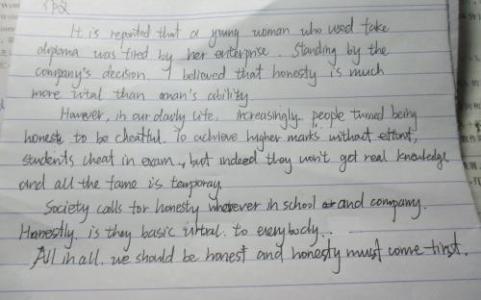 It is reported that a young woman who used fake
diploma was fired by her enterprise. Standing by the
company's decision, I believed that honesty is much
more vital than onan's ability.
However, in our daily life, increasingly people turned being
honest to be cheatful. To achieve higher marks without effort,
students cheat in exam, but indeed they won't get real knowledge
and all the fame is temporay.
Society calls for honesty wherever in school and company.
Honestly is they basic virtral to everybody..
All in all, we should be honest and honesty must come first.